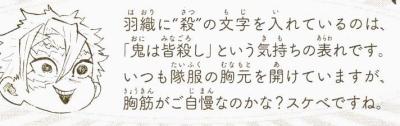 羽織に“殺”の文字を入れているのは、
「鬼は皆殺し」という気持ちの表れです。
いつも隊服の胸元を開けていますが、
胸筋がご自慢なのかな？スケベですね。